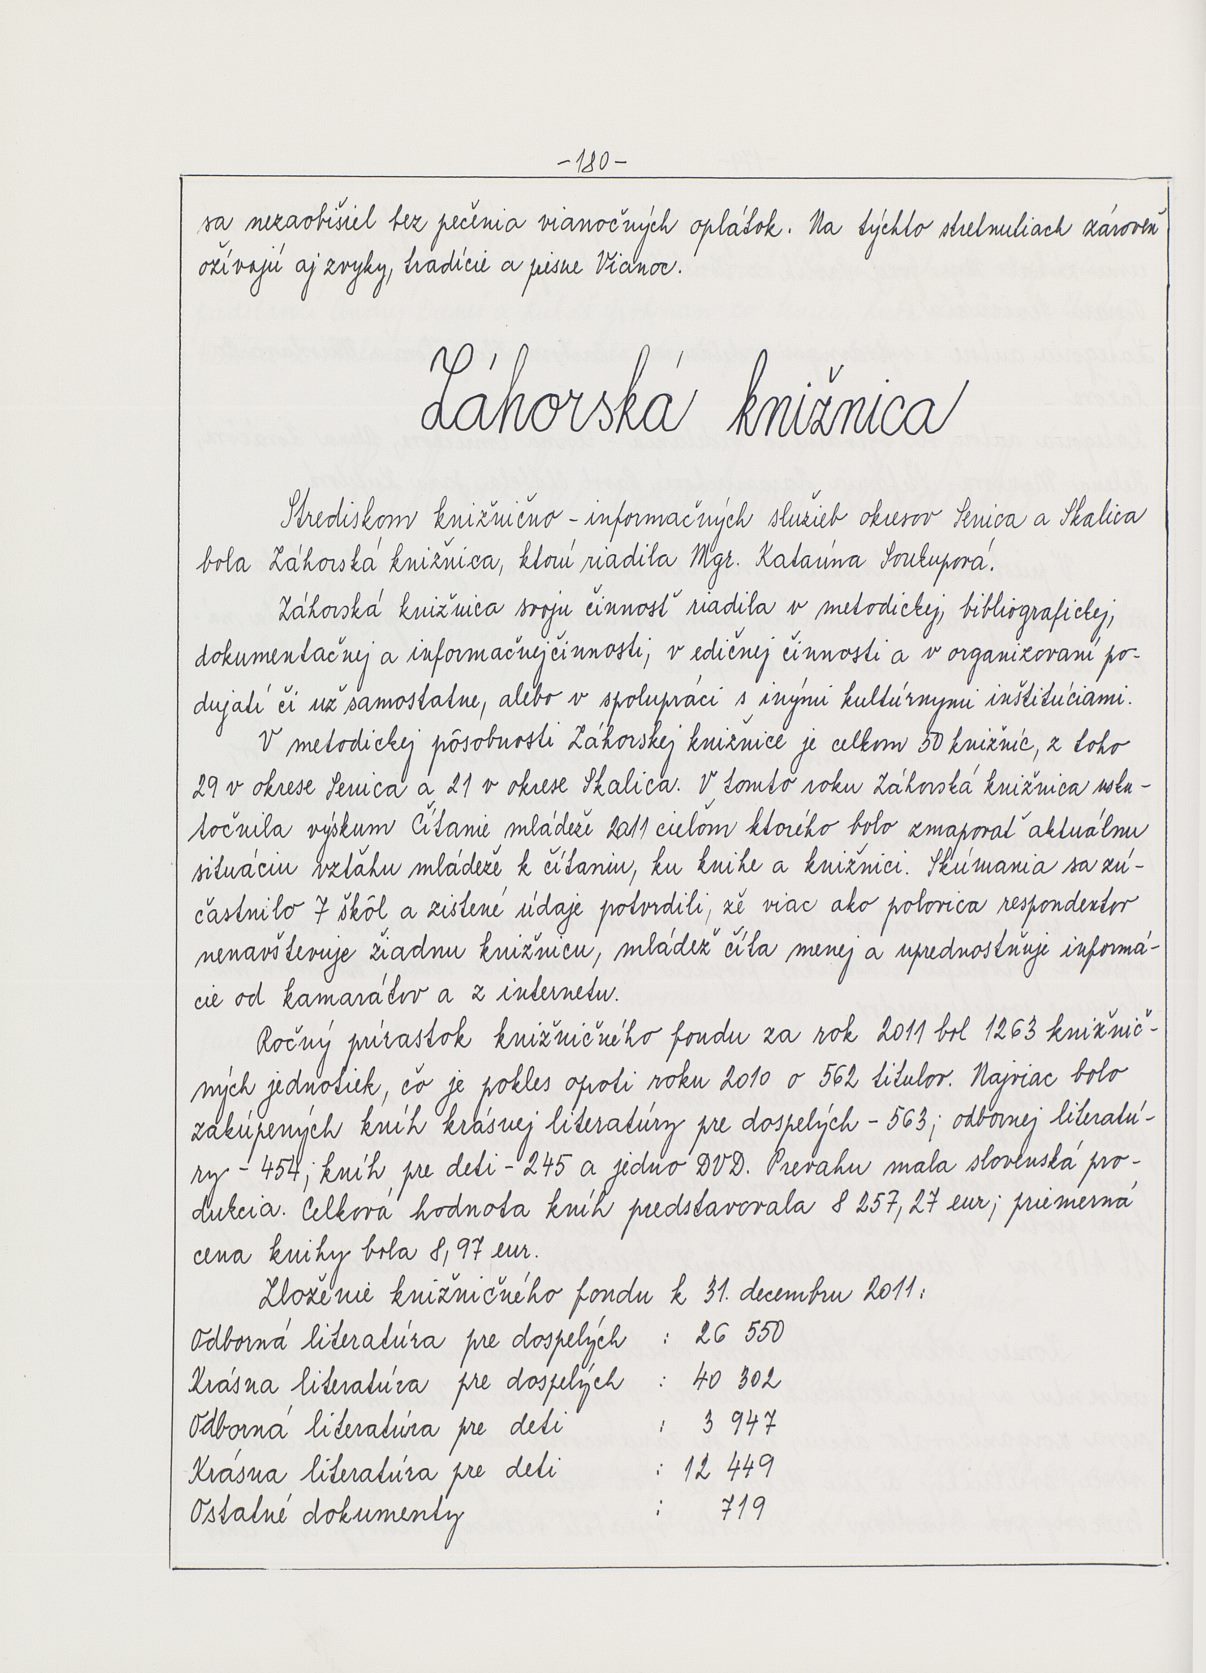 -180-
sa nezaobišiel bez pečenia vianočných oplátok. Na týchto stretnutiach zároveň
ožívajú aj zvyky, tradície a piesne Vianoc.
Záhorská knižnica
Strediskom knižnično-informačných služieb okresov Senica a Skalica
bola Záhorská knižnica, ktorú riadila Mgr. Katarína Soukupová.
Záhorská knižnica svoju činnosť riadila v metodickej, bibliografickej,
dokumentačnej a informačnej činnosti, v edičnej činnosti a v organizovaní po-
dujatí či už samostatne, alebo v spolupráci s inými kultúrnymi inštitúciami.
V metodickej pôsobnosti Záhorskej knižnice je celkom 50 knižníc, z toho
29 v okrese Senica a 21 v okrese Skalica. V tomto roku Záhorská knižnica usku-
točnila výskum Čítanie mládeže 2011 cieľom ktorého bolo zmapovať aktuálnu
situáciu vzťahu mládeže k čítaniu, ku knihe a knižnici. Skúmania sa zú-
častnilo 7 škôl a zistené údaje potvrdili, že viac ako polovica respondentov
nenavštevuje žiadnu knižnicu, mládež číta menej a uprednostňuje informá-
cie od kamarátov a z internetu.
Ročný prírastok knižničného fondu za rok 2011 bol 1263 knižnič-
ných jednotiek, čo je pokles oproti roku 2010 o 562 titulov. Najviac bolo
zakúpených kníh krásnej literatúry pre dospelých - 563; odbornej literatú-
ry - 454; kníh pre deti - 245 a jedno DVD. Prevahu mala slovenská pro-
dukcia. Celková hodnota kníh predstavovala 8 257,27 eur; priemerná
cena knihy bola 8,97 eur.
Zloženie knižničného fondu k 31. decembru 2011:
Odborná literatúra pre dospelých : 26 550
Krásna literatúra pre dospelých : 40 302
Odborná literatúra pre deti : 3 947
Krásna literatúra pre deti : 12 449
Ostatné dokumenty : 719